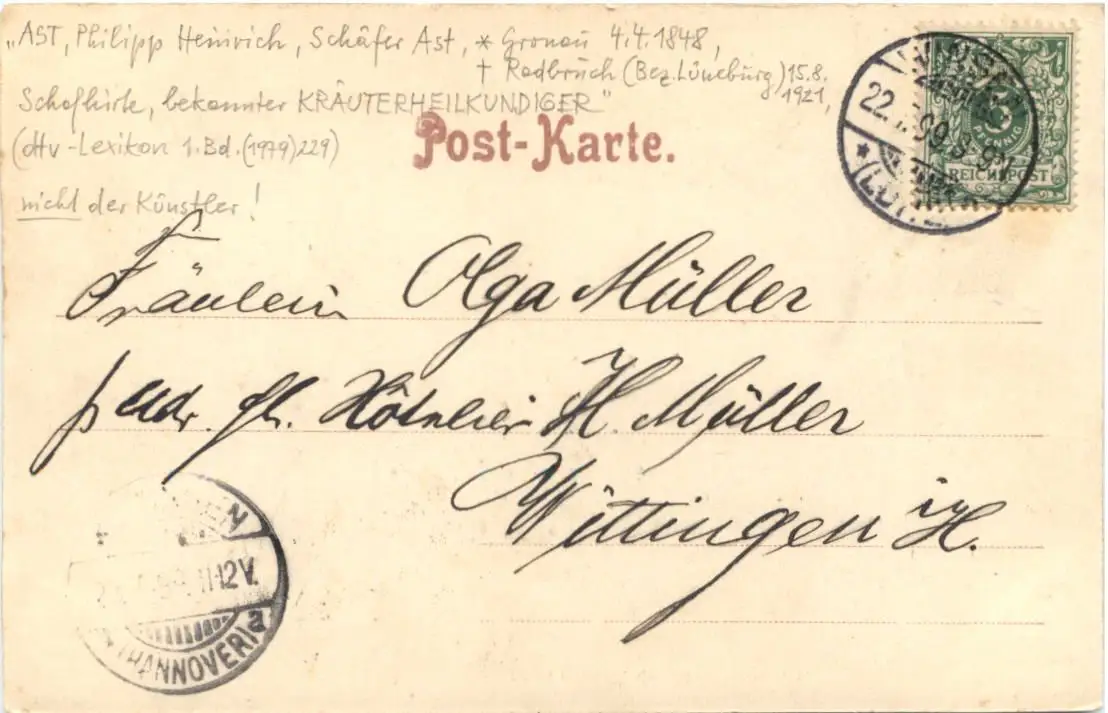 „AST, Philipp Heinrich, Schäfer Ast, * Gronau 4.4.1848,
† Radbruch (Bez. Lüneburg) 15.8.
1921,
Schafhirte, bekannter KRÄUTERHEILKUNDIGER"
(dtv-Lexikon 1.Bd.(1979)229)
nicht der Künstler!
Post-Karte.
WINSEN
22. 99. 8-9N
(LÜ
5
PFENNIG
REICHSPOST
Fräulein Olga Müller
p adr. H. Müller
Wittingen i/H.
GEN
11-12V.
(HANNOVER) a